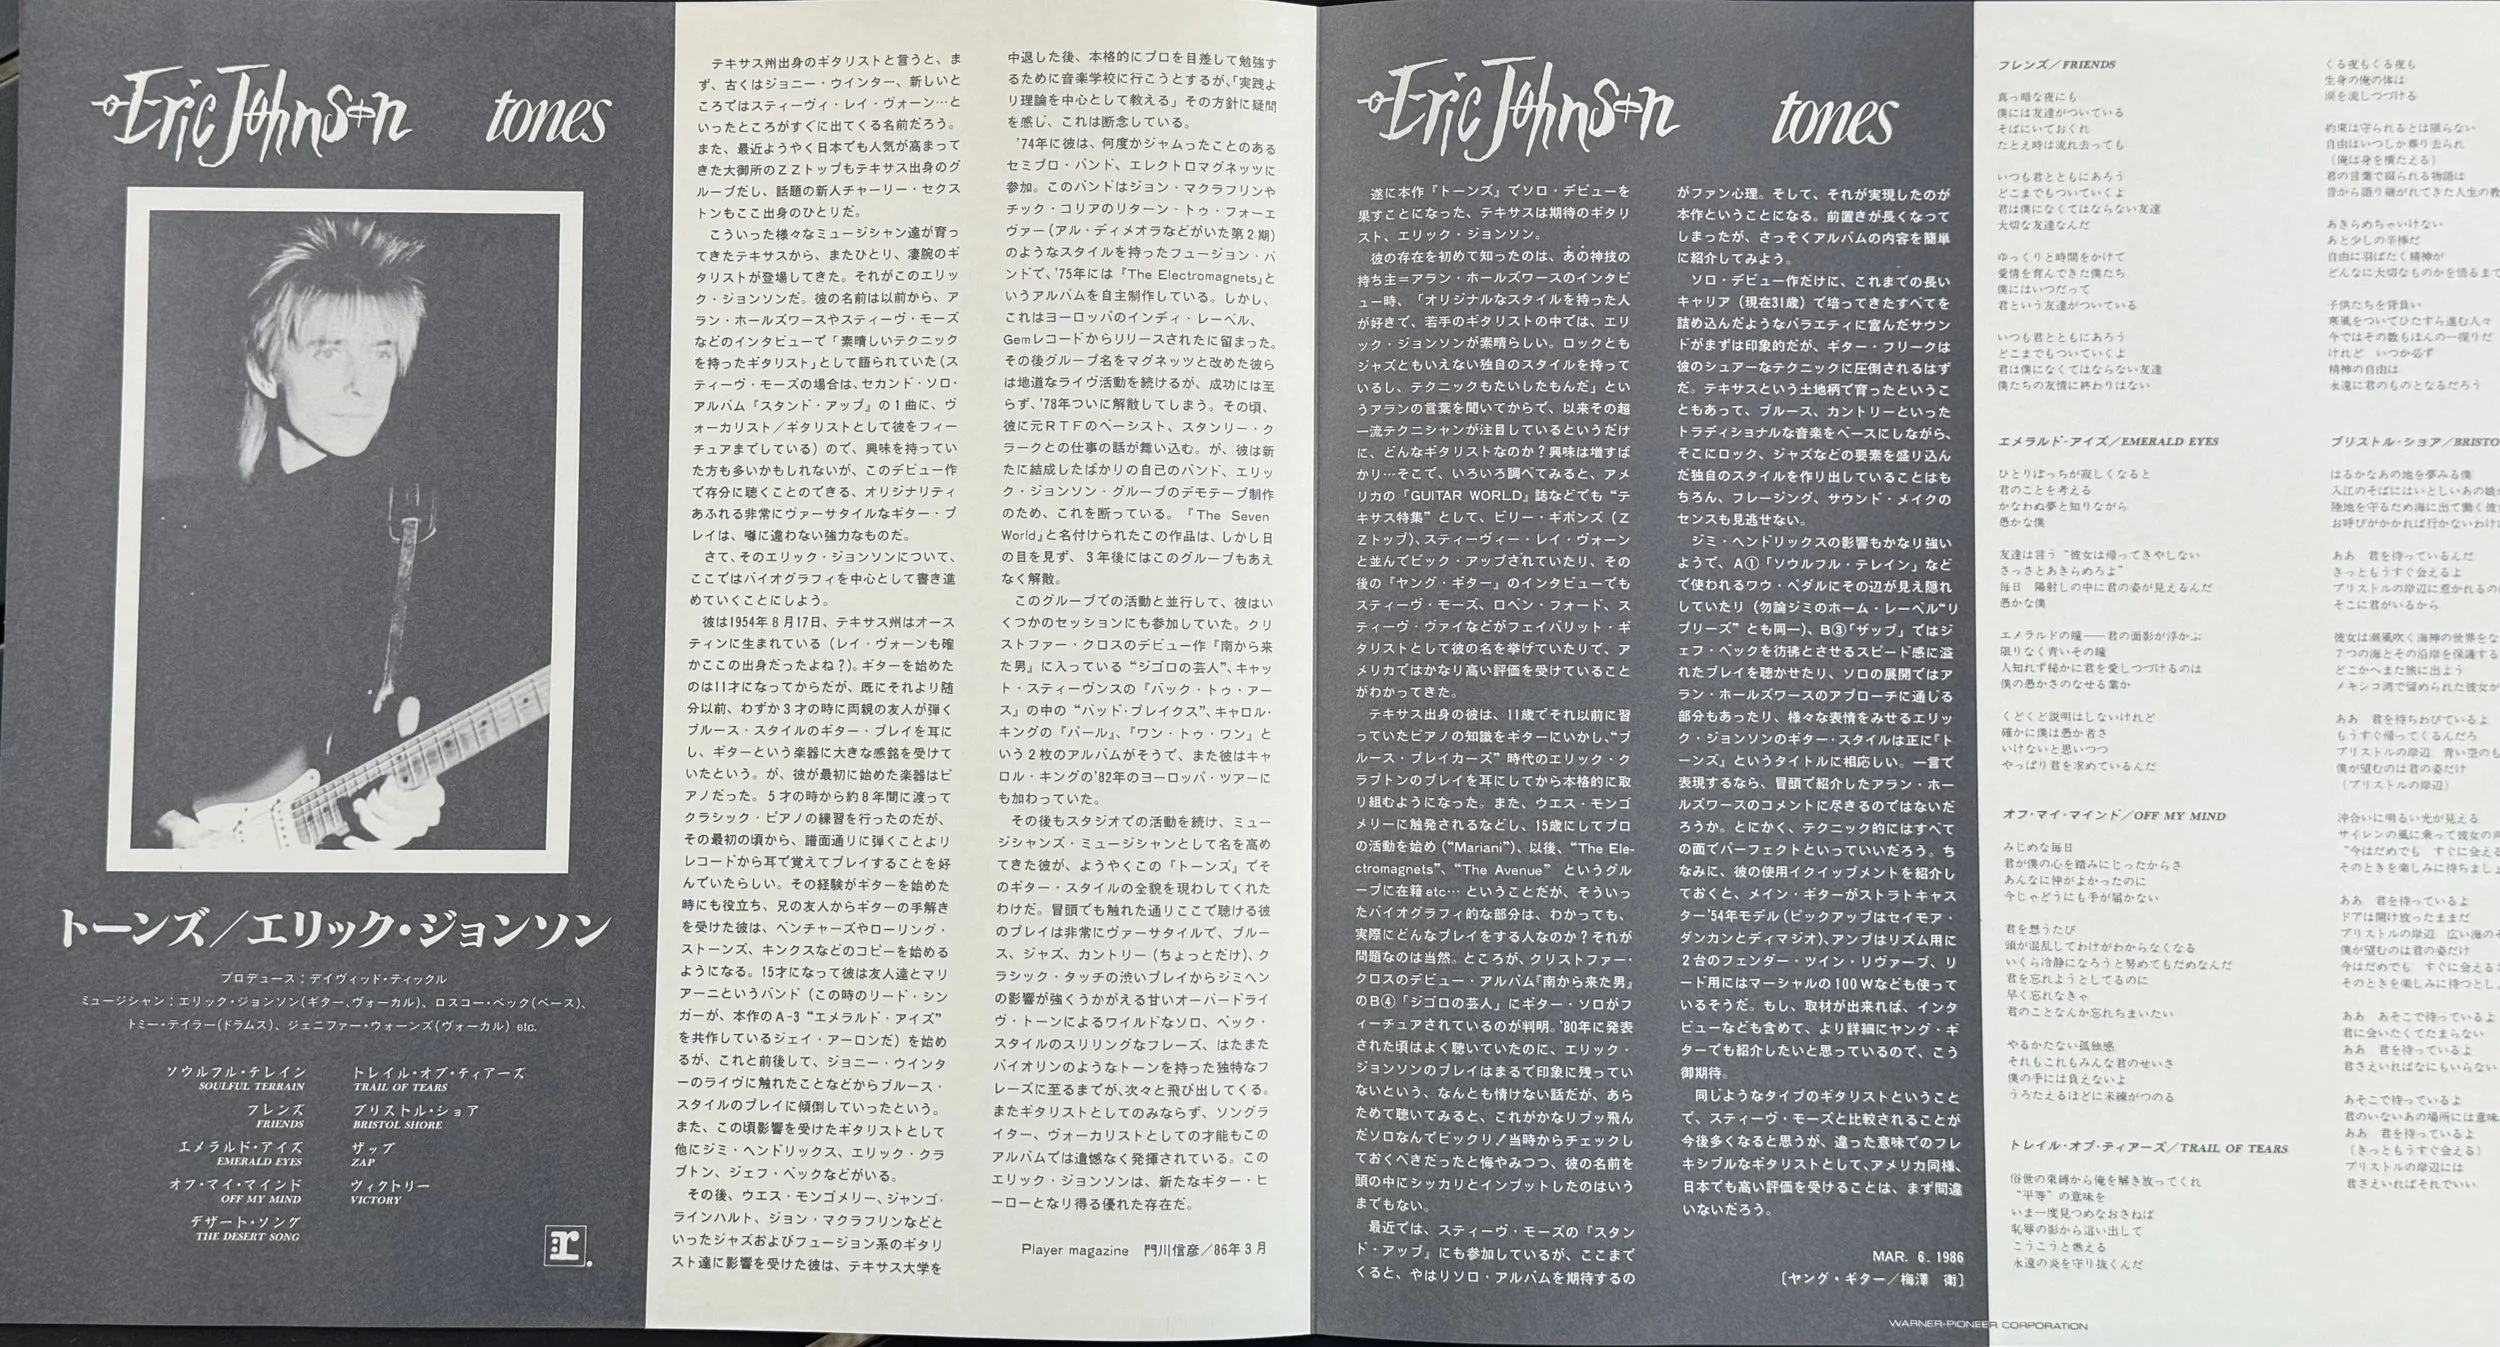 Eric Johnson tones
トーンズ／エリック・ジョンソン
プロデュース：デイヴィッド・ティックル
ミュージシャン：エリック・ジョンソン(ギター、ヴォーカル)、ロスコー・ベック(ベース)、
トミー・テイラー(ドラムス)、ジェニファー・ウォーンズ(ヴォーカル) etc.
ソウルフル・テレイン
SOULFUL TERRAIN
フレンズ
FRIENDS
エメラルド・アイズ
EMERALD EYES
オフ・マイ・マインド
OFF MY MIND
デザート・ソング
THE DESERT SONG
トレイル・オブ・ティアーズ
TRAIL OF TEARS
ブリストル・ショア
BRISTOL SHORE
ザップ
ZAP
ヴィクトリー
VICTORY
r.
テキサス州出身のギタリストと言うと、ま
ず、古くはジョニー・ウインター、新しいと
ころではスティーヴィ・レイ・ヴォーン…と
いったところがすぐに出てくる名前だろう。
また、最近ようやく日本でも人気が高まって
きた大御所のＺＺトップもテキサス出身のグ
ループだし、話題の新人チャーリー・セクス
トンもここ出身のひとりだ。
こういった様々なミュージシャン達が育っ
てきたテキサスから、またひとり、凄腕のギ
タリストが登場してきた。それがこのエリッ
ク・ジョンソンだ。彼の名前は以前から、ア
ラン・ホールズワースやスティーヴ・モーズ
などのインタビューで「素晴しいテクニック
を持ったギタリスト」として語られていた(ス
ティーヴ・モーズの場合は、セカンド・ソロ・
アルバム『スタンド・アップ』の１曲に、ヴ
ォーカリスト／ギタリストとして彼をフィー
チュアまでしている）ので、興味を持ってい
た方も多いかもしれないが、このデビュー作
で存分に聴くことのできる、オリジナリティ
あふれる非常にヴァーサタイルなギター・プ
レイは、噂に違わない強力なものだ。
さて、そのエリック・ジョンソンについて、
ここではバイオグラフィを中心として書き進
めていくことにしよう。
彼は1954年８月17日、テキサス州はオース
ティンに生まれている（レイ・ヴォーンも確
かここの出身だったよね？)。ギターを始めた
のは11才になってからだが、既にそれより随
分以前、わずか３才の時に両親の友人が弾く
ブルース・スタイルのギター・プレイを耳に
し、ギターという楽器に大きな感銘を受けて
いたという。が、彼が最初に始めた楽器はピ
アノだった。５才の時から約８年間に渡って
クラシック・ピアノの練習を行ったのだが、
その最初の頃から、譜面通りに弾くことより
レコードから耳で覚えてプレイすることを好
んでいたらしい。その経験がギターを始めた
時にも役立ち、兄の友人からギターの手解き
を受けた彼は、ベンチャーズやローリング・
ストーンズ、キンクスなどのコピーを始める
ようになる。15才になって彼は友人達とマリ
アーニというバンド（この時のリード・シン
ガーが、本作のA-3 “エメラルド・アイズ”
を共作しているジェイ・アーロンだ）を始め
るが、これと前後して、ジョニー・ウインタ
ーのライヴに触れたことなどからブルース・
スタイルのプレイに傾倒していったという。
また、この頃影響を受けたギタリストとして
他にジミ・ヘンドリックス、エリック・クラ
プトン、ジェフ・ベックなどがいる。
その後、ウエス・モンゴメリー、ジャンゴ・
ラインハルト、ジョン・マクラフリンなどと
いったジャズおよびフュージョン系のギタリ
スト達に影響を受けた彼は、テキサス大学を
中退した後、本格的にプロを目差して勉強す
るために音楽学校に行こうとするが、「実践よ
り理論を中心として教える」その方針に疑問
を感じ、これは断念している。
'74年に彼は、何度かジャムったことのある
セミプロ・バンド、エレクトロマグネッツに
参加。このバンドはジョン・マクラフリンや
チック・コリアのリターン・トゥ・フォーエ
ヴァー(アル・ディメオラなどがいた第２期)
のようなスタイルを持ったフュージョン・バ
ンドで、'75年には『The Electromagnets』と
いうアルバムを自主制作している。しかし、
これはヨーロッパのインディ・レーベル、
Gemレコードからリリースされたに留まった。
その後グループ名をマグネッツと改めた彼ら
は地道なライヴ活動を続けるが、成功には至
らず、'78年ついに解散してしまう。その頃、
彼に元ＲＴＦのベーシスト、スタンリー・ク
ラークとの仕事の話が舞い込む。が、彼は新
たに結成したばかりの自己のバンド、エリッ
ク・ジョンソン・グループのデモテープ制作
のため、これを断っている。『The Seven
World』と名付けられたこの作品は、しかし日
の目を見ず、３年後にはこのグループもあえ
なく解散。
このグループでの活動と並行して、彼はい
くつかのセッションにも参加していた。クリ
ストファー・クロスのデビュー作『南から来
た男』に入っている “ジゴロの芸人”、キャッ
ト・スティーヴンスの『バック・トゥ・アー
ス』の中の “バッド・ブレイクス”、キャロル・
キングの『パール』、『ワン・トゥ・ワン』と
いう２枚のアルバムがそうで、また彼はキャ
ロル・キングの'82年のヨーロッパ・ツアーに
も加わっていた。
その後もスタジオでの活動を続け、ミュー
ジシャンズ・ミュージシャンとして名を高め
てきた彼が、ようやくこの『トーンズ』でそ
のギター・スタイルの全貌を現わしてくれた
わけだ。冒頭でも触れた通りここで聴ける彼
のプレイは非常にヴァーサタイルで、ブルー
ス、ジャズ、カントリー（ちょっとだけ)、ク
ラシック・タッチの渋いプレイからジミヘン
の影響が強くうかがえる甘いオーバードライ
ヴ・トーンによるワイルドなソロ、ベック・
スタイルのスリリングなフレーズ、はたまた
バイオリンのようなトーンを持った独特なフ
レーズに至るまでが、次々と飛び出してくる。
またギタリストとしてのみならず、ソングラ
イター、ヴォーカリストとしての才能もこの
アルバムでは遺憾なく発揮されている。この
エリック・ジョンソンは、新たなギター・ヒ
ーローとなり得る優れた存在だ。
Player magazine 門川信彦／86年３月
Eric Johnson tones
遂に本作『トーンズ』でソロ・デビューを
果すことになった、テキサスは期待のギタリ
スト、エリック・ジョンソン。
彼の存在を初めて知ったのは、あの神技の
持ち主＝アラン・ホールズワースのインタビ
ュー時、「オリジナルなスタイルを持った人
が好きで、若手のギタリストの中では、エリ
ック・ジョンソンが素晴らしい。ロックとも
ジャズともいえない独自のスタイルを持って
いるし、テクニックもたいしたもんだ」とい
うアランの言葉を聞いてからで、以来その超
一流テクニシャンが注目しているというだけ
に、どんなギタリストなのか？興味は増すば
かり…そこで、いろいろ調べてみると、アメ
リカの『GUITAR WORLD』誌などでも “テ
キサス特集” として、ビリー・ギボンズ（Ｚ
Ｚトップ)、スティーヴィー・レイ・ヴォーン
と並んでピック・アップされていたり、その
後の『ヤング・ギター』のインタビューでも
スティーヴ・モーズ、ロベン・フォード、ス
ティーヴ・ヴァイなどがフェイバリット・ギ
タリストとして彼の名を挙げていたりで、ア
メリカではかなり高い評価を受けていること
がわかってきた。
テキサス出身の彼は、11歳でそれ以前に習
っていたピアノの知識をギターにいかし、“ブ
ルース・ブレイカーズ” 時代のエリック・ク
ラプトンのプレイを耳にしてから本格的に取
り組むようになった。また、ウエス・モンゴ
メリーに触発されるなどし、15歳にしてプロ
の活動を始め (“Mariani”)、以後、“The Ele-
ctromagnets”、“The Avenue” というグル
ープに在籍 etc… ということだが、そういっ
たバイオグラフィ的な部分は、わかっても、
実際にどんなプレイをする人なのか？それが
問題なのは当然。ところが、クリストファー・
クロスのデビュー・アルバム『南から来た男』
のB④「ジゴロの芸人」にギター・ソロがフ
ィーチュアされているのが判明。'80年に発表
された頃はよく聴いていたのに、エリック・
ジョンソンのプレイはまるで印象に残ってい
ないという、なんとも情けない話だが、あら
ためて聴いてみると、これがかなりブッ飛ん
だソロなんでビックリ！当時からチェックし
ておくべきだったと悔やみつつ、彼の名前を
頭の中にシッカリとインプットしたのはいう
までもない。
最近では、スティーヴ・モーズの『スタン
ド・アップ』にも参加しているが、ここまで
くると、やはりソロ・アルバムを期待するの
がファン心理。そして、それが実現したのが
本作ということになる。前置きが長くなって
しまったが、さっそくアルバムの内容を簡単
に紹介してみよう。
ソロ・デビュー作だけに、これまでの長い
キャリア（現在31歳）で培ってきたすべてを
詰め込んだようなバラエティに富んだサウン
ドがまずは印象的だが、ギター・フリークは
彼のシュアーなテクニックに圧倒されるはず
だ。テキサスという土地柄で育ったというこ
ともあって、ブルース、カントリーといった
トラディショナルな音楽をベースにしながら、
そこにロック、ジャズなどの要素を盛り込ん
だ独自のスタイルを作り出していることはも
ちろん、フレージング、サウンド・メイクの
センスも見逃せない。
ジミ・ヘンドリックスの影響もかなり強い
ようで、A①「ソウルフル・テレイン」など
で使われるワウ・ペダルにその辺が見え隠れ
していたり（勿論ジミのホーム・レーベル“リ
プリーズ” とも同一)、B③「ザップ」ではジ
ェフ・ベックを彷彿とさせるスピード感に溢
れたプレイを聴かせたり、ソロの展開ではア
ラン・ホールズワースのアプローチに通じる
部分もあったり、様々な表情をみせるエリッ
ク・ジョンソンのギター・スタイルは正に『ト
ーンズ』というタイトルに相応しい。一言で
表現するなら、冒頭で紹介したアラン・ホー
ルズワースのコメントに尽きるのではないだ
ろうか。とにかく、テクニック的にはすべて
の面でパーフェクトといっていいだろう。ち
なみに、彼の使用イクイップメントを紹介し
ておくと、メイン・ギターがストラトキャス
ター'54年モデル（ピックアップはセイモア・
ダンカンとディマジオ)、アンプはリズム用に
２台のフェンダー・ツイン・リヴァーブ、リ
ード用にはマーシャルの100Ｗなども使って
いるそうだ。もし、取材が出来れば、インタ
ビューなども含めて、より詳細にヤング・ギ
ターでも紹介したいと思っているので、こう
御期待。
同じようなタイプのギタリストということ
で、スティーヴ・モーズと比較されることが
今後多くなると思うが、違った意味でのフレ
キシブルなギタリストとして、アメリカ同様、
日本でも高い評価を受けることは、まず間違
いないだろう。
MAR. 6. 1986
〔ヤング・ギター／梅澤 衛〕
フレンズ／FRIENDS
真っ暗な夜にも
僕には友達がついている
そばにいておくれ
たとえ時は流れ去っても
いつも君とともにあろう
どこまでもついていくよ
君は僕になくてはならない友達
大切な友達なんだ
ゆっくりと時間をかけて
愛情を育んできた僕たち
僕にはいつだって
君という友達がついている
いつも君とともにあろう
どこまでもついていくよ
君は僕になくてはならない友達
僕たちの友情に終わりはない
エメラルド・アイズ／EMERALD EYES
ひとりぼっちが寂しくなると
君のことを考える
かなわぬ夢と知りながら
愚かな僕
友達は言う “彼女は帰ってきやしない
さっさとあきらめろよ”
毎日 陽射しの中に君の姿が見えるんだ
愚かな僕
エメラルドの瞳――君の面影が浮かぶ
限りなく青いその瞳
人知れず秘かに君を愛しつづけるのは
僕の愚かさのなせる業か
くどくど説明はしないけれど
確かに僕は愚か者さ
いけないと思いつつ
やっぱり君を求めているんだ
オフ・マイ・マインド／OFF MY MIND
みじめな毎日
君が僕の心を踏みにじったからさ
あんなに仲がよかったのに
今じゃどうにも手が届かない
君を想うたび
頭が混乱してわけがわからなくなる
いくら冷静になろうと努めてもだめなんだ
君を忘れようとしてるのに
早く忘れなきゃ
君のことなんか忘れちまいたい
やるかたない孤独感
それもこれもみんな君のせいさ
僕の手には負えないよ
うろたえるほどに未練がつのる
トレイル・オブ・ティアーズ／TRAIL OF TEARS
俗世の束縛から俺を解き放ってくれ
“平等” の意味を
いま一度見つめなおさねば
恥辱の影から這い出して
こうこうと燃える
永遠の炎を守り抜くんだ
くる夜もくる夜も
生身の俺の体は
涙を流しつづける
約束は守られるとは限らない
自由はいつしか葬り去られ
（俺は身を横たえる）
君の言葉で綴られる物語は
昔から語り継がれてきた人生の教
あきらめちゃいけない
あと少しの辛棒だ
自由に羽ばたく精神が
どんなに大切なものかを悟るまで
子供たちを背負い
寒風をついてひたすら進む人々
今ではその数もほんの一握りだ
けれど いつか必ず
精神の自由は
永遠に君のものとなるだろう
ブリストル・ショア／BRISTO
はるかなあの地を夢みる僕
入江のそばにはいとしいあの娘が
陸地を守るため海に出て働く彼女
お呼びがかかれば行かないわけに
ああ 君を待っているんだ
きっともうすぐ会えるよ
ブリストルの岸辺に惹かれるのは
そこに君がいるから
彼女は潮風吹く海神の世界をな
７つの海とその沿岸を保護する
どこかへまた旅に出よう
メキシコ湾で留められた彼女が
ああ 君を待ちわびているよ
もうすぐ帰ってくるんだろ
ブリストルの岸辺 青い空のも
僕が望むのは君の姿だけ
（ブリストルの岸辺）
沖合いに明るい光が見える
サイレンの風に乗って彼女の声
“今はだめでも すぐに会える
そのときを楽しみに待ちましょ
ああ 君を待っているよ
ドアは開け放ったままだ
ブリストルの岸辺 広い海のそ
僕が望むのは君の姿だけ
今はだめでも すぐに会える
そのときを楽しみに待つとし
ああ あそこで待っているよ
君に会いたくてたまらない
ああ 君を待っているよ
君さえいればなにもいらない
あそこで待っているよ
君のいないあの場所には意味
ああ 君を待っているよ
（きっともうすぐ会える）
ブリストルの岸辺には
君さえいればそれでいい
WARNER-PIONEER CORPORATION